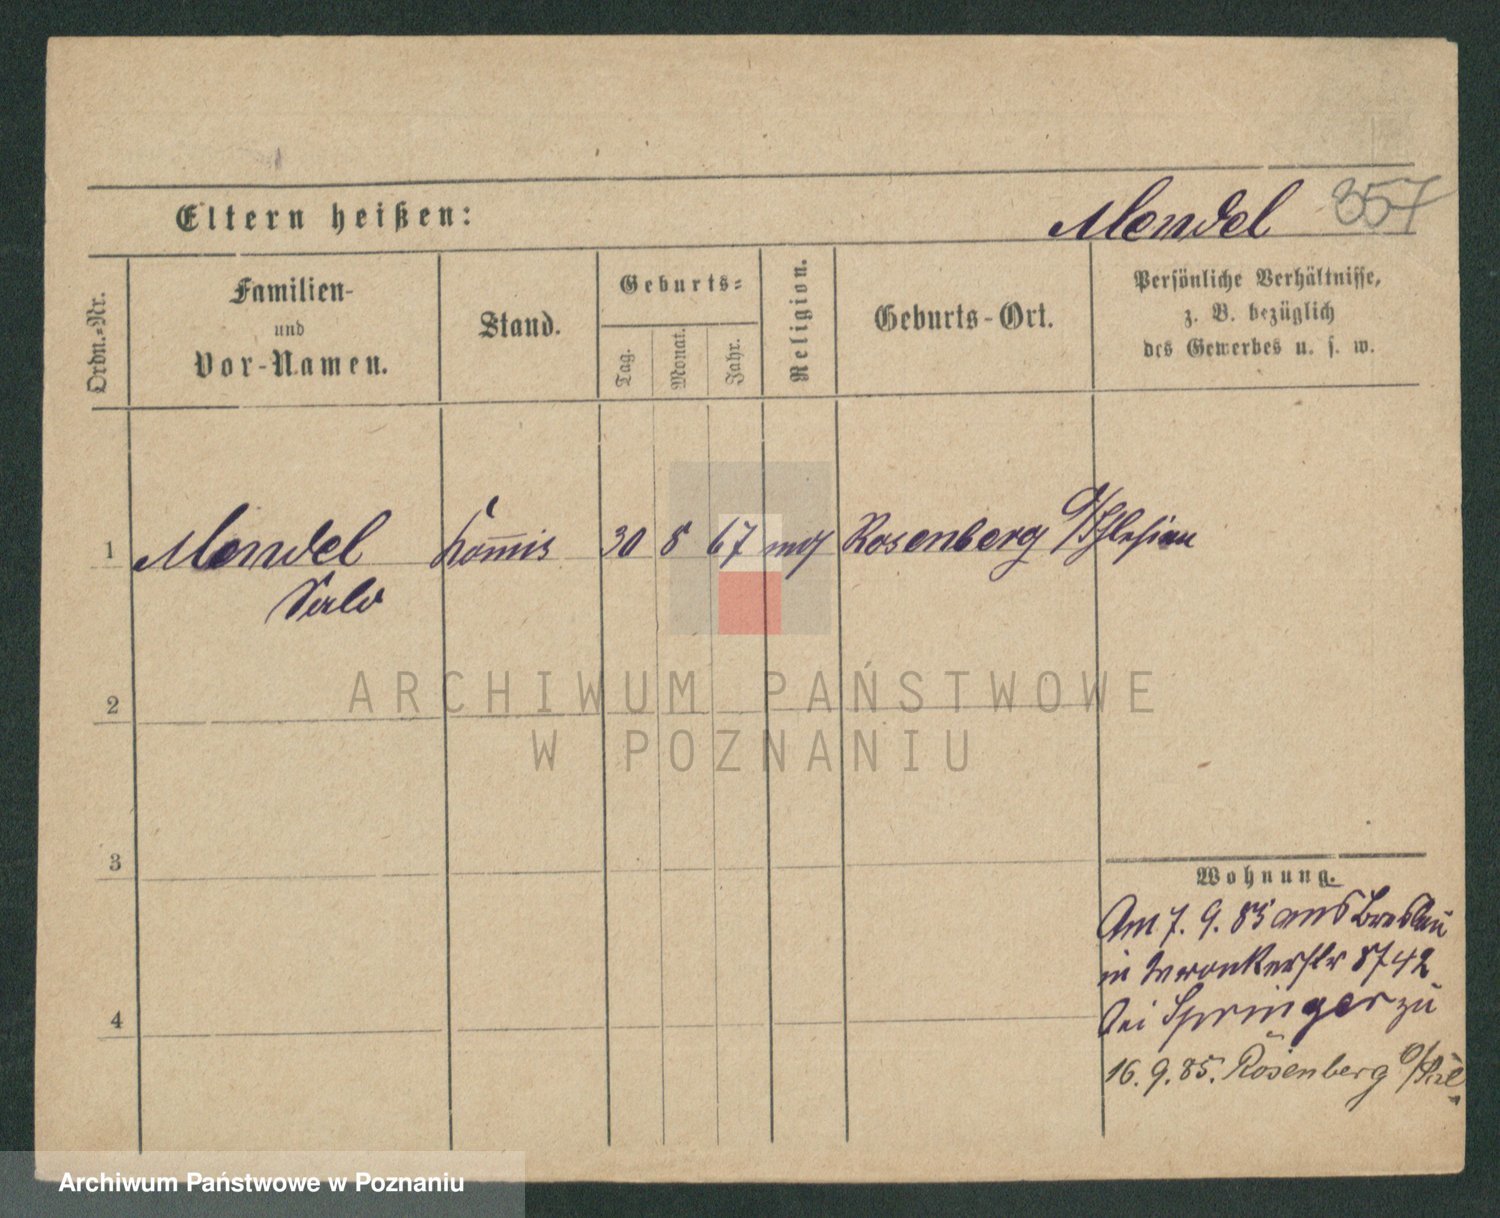 Eltern heißen:
Mendel 357
Ordn.-Nr.
Familien-
und
Vor-Namen.
Stand.
Geburts-
Tag.
Monat.
Jahr.
Religion.
Geburts-Ort.
Persönliche Verhältnisse,
z. B. bezüglich
des Gewerbes u. s. w.
1 Mendel Kom̄is 30 8 67 mos Rosenberg O/Schlesien
Salo
ARCHIWUM PAŃSTWOWE
W POZNANIU
2
3
4
Wohnung.
Am 7. 9. 85 aus Breslau
in Wronkerstr
bei Springer zu
16. 9. 85. Rosenberg
Archiwum Państwowe w Poznaniu